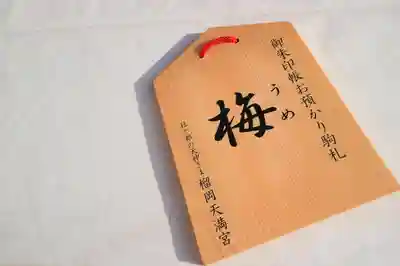 御朱印帳お預かり駒札
うめ
梅
杜の都の天神さま
榴岡天満宮